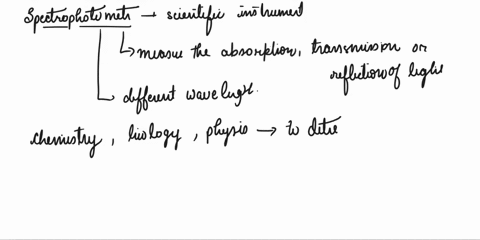 Spectrophotometr → scientific instrument
→ measure the absorption, transmission or
reflection of light
different wavelught.
chemistry, biology, physio → to dete